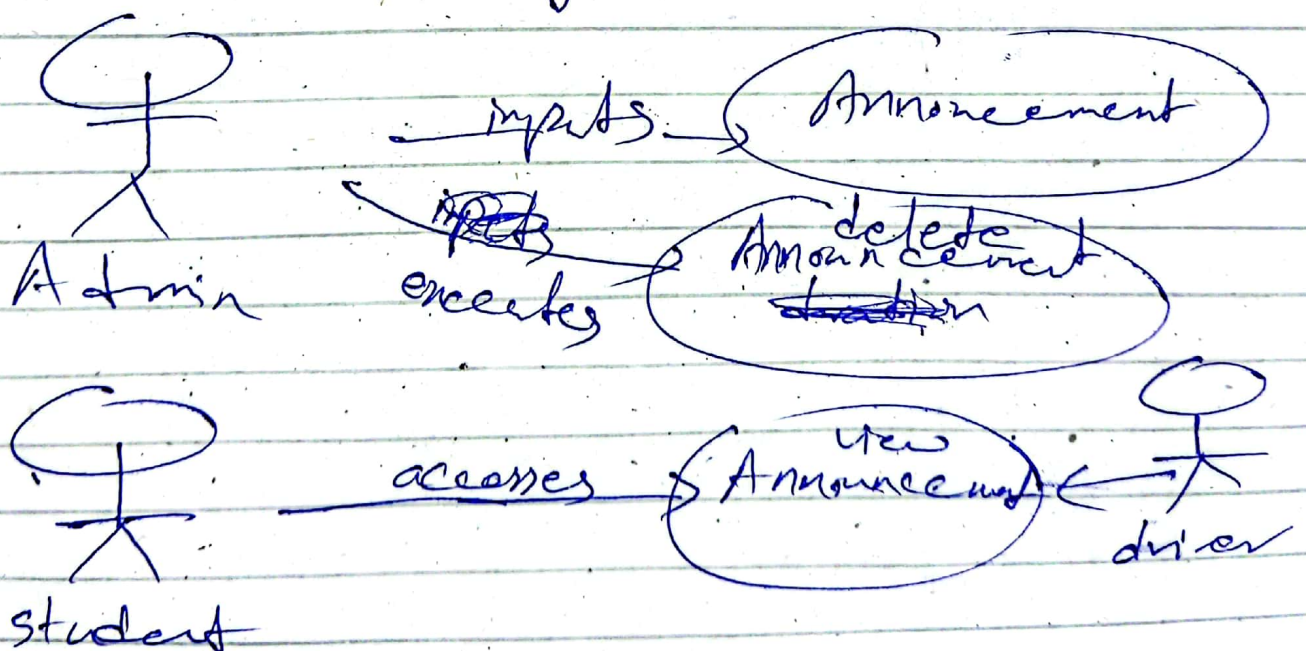 inputs Announcement
Admin executes delete Announcement
accesses view Announcement
driver
student